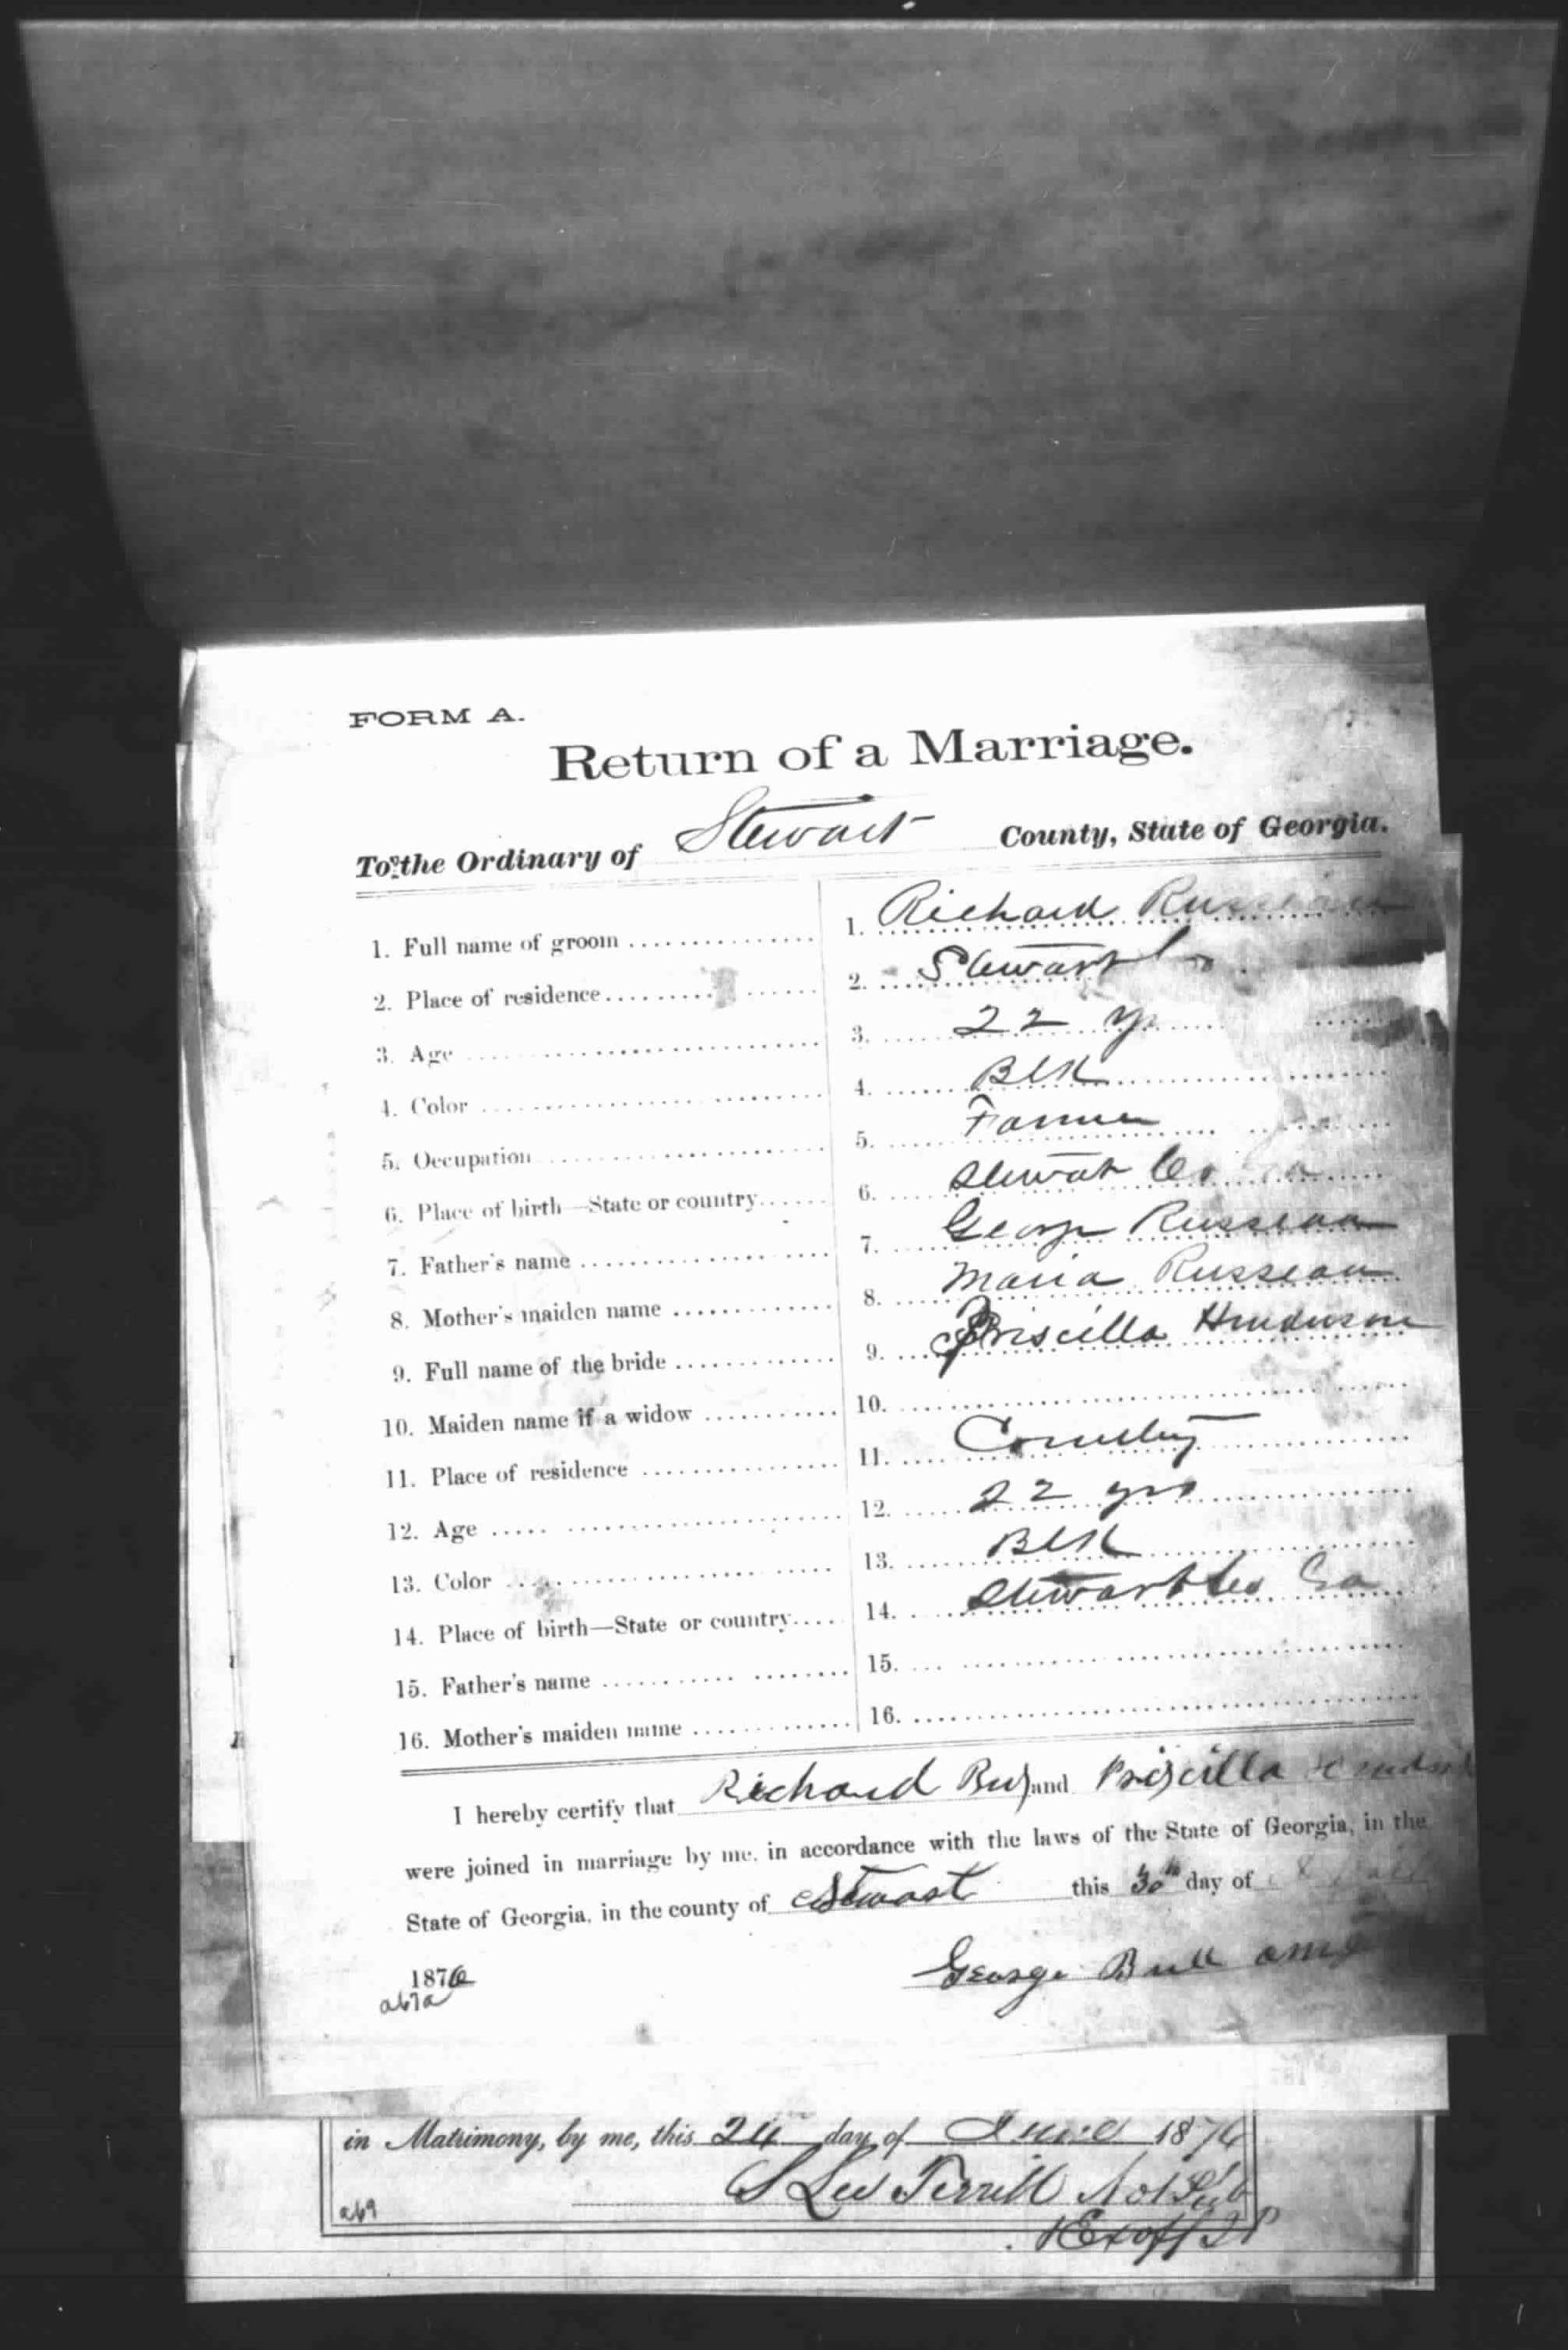 FORM A.
Return of a Marriage.
To the Ordinary of Stewart County, State of Georgia.
1. Full name of groom 1. Richard Russeau
2. Place of residence 2. Stewart
3. Age 3. 22 yr
4. Color 4. Blk
5. Occupation 5. Farmer
6. Place of birth—State or country 6. Stewart Co
7. Father's name 7. George Russeau
8. Mother's maiden name 8. Maria Russeau
9. Full name of the bride 9. Priscilla Henderson
10. Maiden name if a widow 10.
11. Place of residence 11. Country
12. Age 12. 22 yrs
13. Color 13. Blk
14. Place of birth—State or country 14. Stewart Co Ga
15. Father's name 15.
16. Mother's maiden name 16.
I hereby certify that Richard Rus and Priscilla
were joined in marriage by me, in accordance with the laws of the State of Georgia, in the
State of Georgia, in the county of Stewart this 30th day of
1876
George Bull
a67a
in Matrimony, by me, this 24 day of June 1876
S Lee Terrill Not Pub
a69
Exoff JP